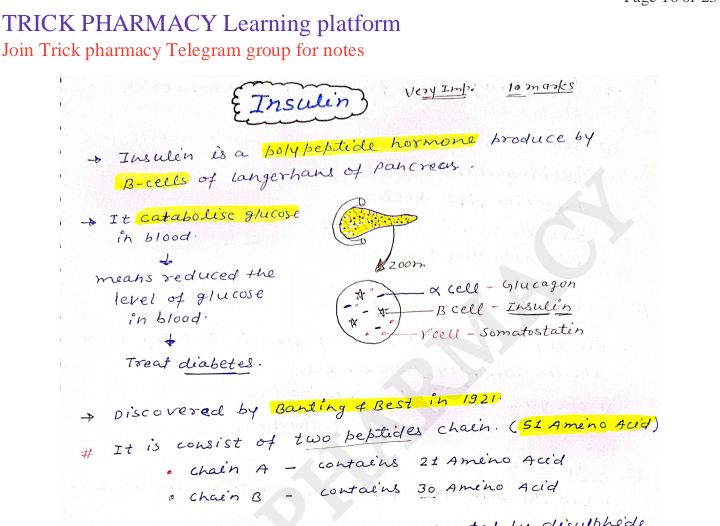 Page 16 of 25
TRICK PHARMACY Learning platform
Join Trick pharmacy Telegram group for notes
Insulin
Very Imp. 10 marks
→ Insulin is a polypeptide hormone produce by
β-cells of langerhans of pancreas.
→ It catabolise glucose
in blood.
means reduced the
level of glucose
in blood.
Treat diabetes.
zoom
α cell - Glucagon
β cell - Insulin
γ cell - Somatostatin
→ Discovered by Banting & Best in 1921.
# It is consist of two peptides chain. (51 Amino Acid)
• chain A - contains 21 Amino Acid
• chain B - contains 30 Amino Acid
by disulphide
PHARMACY